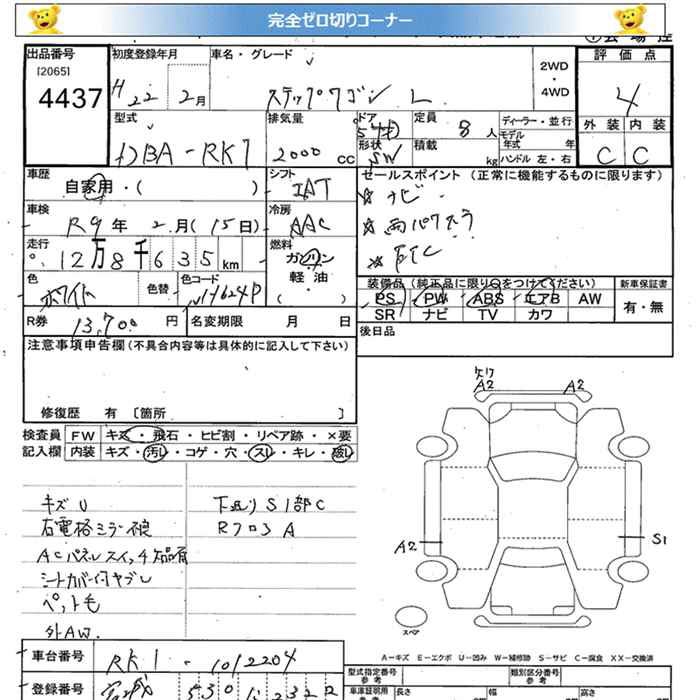 完全ゼロ切りコーナー
出品番号
[2065]
4437
初度登録年月
H 22 2月
車名・グレード
ステップワゴン L
2WD
・
4WD
評価点
4
外装 内装
C C
型式
DBA-RK1
排気量
2000 cc
ドア
形状
SW
定員
8 人
積載
kg
ディーラー・並行
モデル
年式 年
ハンドル 左・右
車歴
自家用・( )
シフト
IAT
セールスポイント(正常に機能するものに限ります)
ナビ
両パワスラ
ETC
車検
R9年 2月(15日)
冷房
AAC
走行
12万8千635km
燃料
ガソリン
軽・油
( )
色
ホワイト
色替
色コード
NH624P
装備品(純正品に限り○をつけてください)
PS PW ABS エアB AW
SR ナビ TV カワ
新車保証書
有・無
R券 13,700 円
名変期限 月 日
後日品
注意事項申告欄(不具合内容等は具体的に記入して下さい)
修復歴 有 〔箇所 〕
検査員 FW キズ・飛石・ヒビ割・リペア跡・×要
記入欄 内装 キズ・汚レ・コゲ・穴・スレ・キレ・破レ
キズU
右電格ミラー不良
ACパネルスイッチ欠品有
シートカバー付ヤブレ
ペット毛
外AW.
下廻りS1部C
RフロアA
A2
A2
A2
S1
スペア
A-キズ E-エクボ U-凹み W-補修跡 S-サビ C-腐食 XX-交換済
車台番号 RK1-1012204
登録番号
型式指定番号
参考
類別区分番号
参考
車検証明用
参考
長さ
幅
高さ